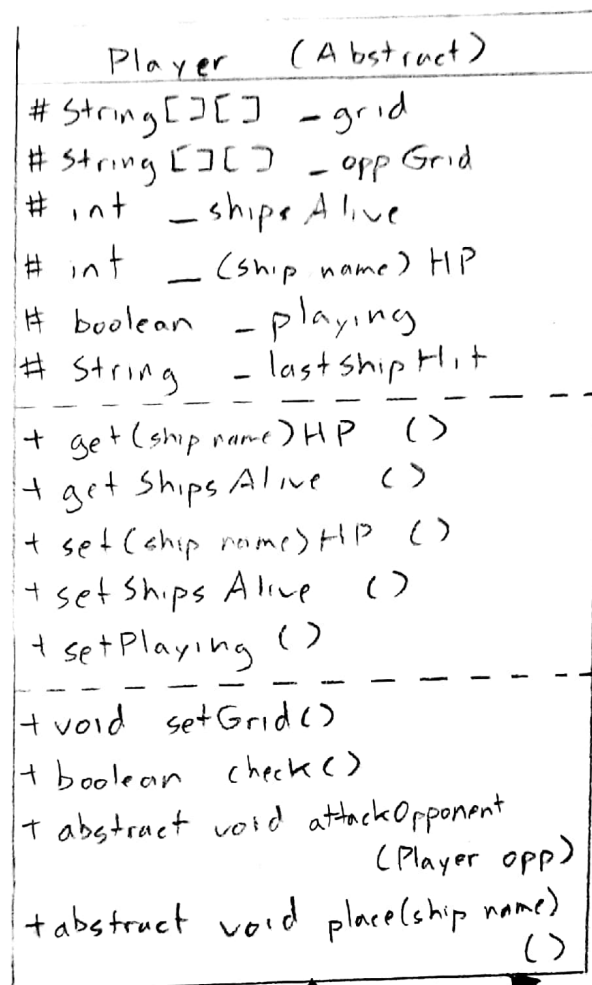 Player (Abstract)
# String[][] _grid
# String[][] _oppGrid
# int _shipsAlive
# int _(ship name)HP
# boolean _playing
# String _lastShipHit
+ get(ship name)HP ()
+ getShipsAlive ()
+ set(ship name)HP ()
+ setShipsAlive ()
+ setPlaying ()
+ void setGrid()
+ boolean check()
+ abstract void attackOpponent
(Player opp)
+ abstract void place(ship name)
()